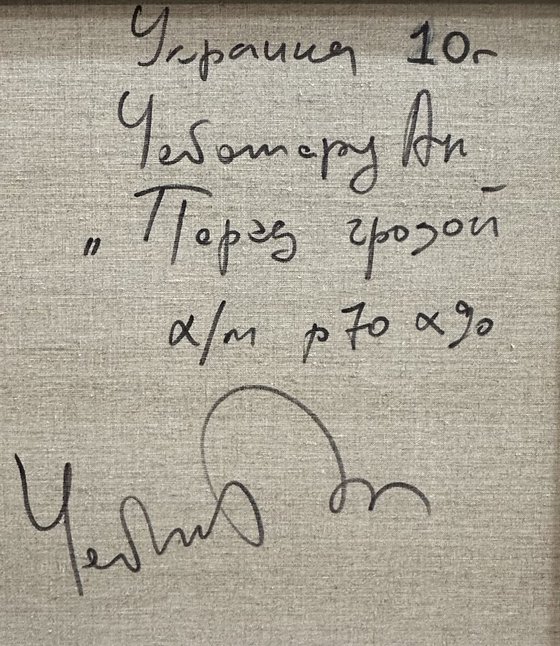 Украина 10г
Чеботару Ан
„Перед грозой
х/м р 70 х 90